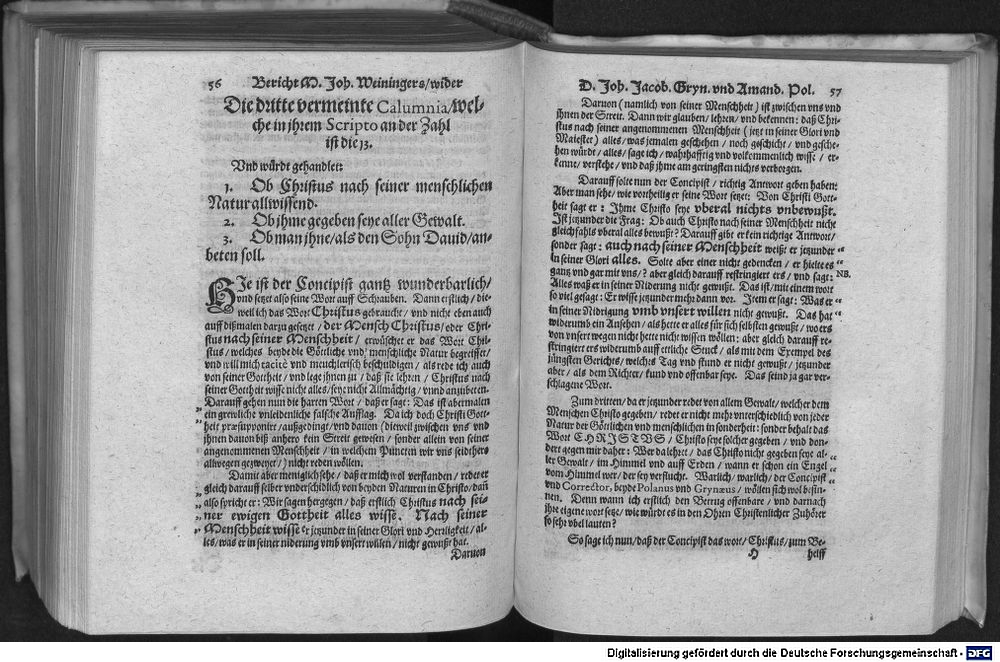 56 Bericht M. Joh. Weiningers/wider
Die dritte vermeinte Calumnia/wel-
che in ihrem Scripto an der Zahl
ist die 13.
Vnd würdt gehandlet:
1. Ob Christus nach seiner menschlichen
Natur allwissend.
2. Ob jhme gegeben seye aller Gewalt.
3. Ob man jhne/als den Sohn Dauid/an-
betten soll.
HJe ist der Concipist gantz wunderbarlich/
vnd setzt also seine Wort auff Schrauben. Dann erstlich/die-
weil ich das Wort Christus gebrauche/vnd nicht eben auch
auff dißmalen darzu gesetzt/der Mensch Christus/oder Chri-
stus nach seiner Menschheit/ erwüschet er das Wort Chri-
stus/welches beyde die Göttliche vnd menschliche Natur begreiffet/
vnd will mich tacitè vnd meuchlerisch beschuldigen/als rede ich auch
von seiner Gottheit/vnd lege jhnen zu/daß sie lehren/Christus nach
seiner Gottheit wisse nicht alles/seye nicht Allmächtig/vnnd anzubeten.
Darauff gehen nun die harten Wort/daß er sagt: Das ist abermalen
ein grewliche vnleidenliche falsche Aufflag. Da ich doch Christi Gott-
heit præsupponirt/außgedingt/vnd dauon (dieweil zwischen vns vnd
jhnen dauon biß anhero kein Streit gewesen/sonder allein von seiner
angenommenen Menschheit/in welchem Puncten wir vns seidthers
allwegen gezweyet/) nicht reden wöllen.
Damit aber meniglich sehe/daß er mich wol verstanden/redet er
gleich darauff selber vnderschidlich von beyden Naturen in Christo/dañ
also spricht er: Wir sagen hergegen/daß erstlich Christus nach sei-
ner ewigen Gottheit alles wisse. Nach seiner
Menschheit wisse er jetzunder in seiner Glori vnd Herrligkeit/al-
les/was er in seiner niderung vmb vnsert willen/nicht gewußt hat.
Daruon
D. Joh. Jacob. Gryn. vnd Amand. Pol. 57
Daruon (namlich von seiner Menschheit) ist zwischen vns vnd
jhnen der Streit. Dann wir glauben/lehren/vnd bekennen: daß Chri-
stus nach seiner angenommenen Menschheit (jetzt in seiner Glori vnd
Maiestet) alles/was jemalen geschehen/noch geschicht/vnd gesche-
hen würdt/alles/sage ich/wahrhafftig vnd volkommenlich wisse/er-
kenne/verstehe/vnd daß jhme am geringsten nichts verborgen.
Darauff solte nun der Concipist/richtig Antwort geben haben:
Aber man sehe/wie vortheilig er seine Wort setzet: Von Christi Gott-
heit sagt er: Jhme Christo seye vberal nichts vnbewußt.
Jst jetzunder die Frag: Ob auch Christo nach seiner Menschheit nicht
gleichfahls vberal alles bewußt? Darauff gibt er kein richtige Antwort/
sonder sagt: auch nach seiner Menschheit weißt er jetzunder
in seiner Glori alles. Solte aber einer nicht gedencken/er hielte es
gantz vnd gar mit vns/? aber gleich darauff restringiert ers/vnd sagt: NB.
Alles waß er in seiner Niderung nicht gewußt. Das ist/mit einem wort
so viel gesagt: Er wisse jetzunder mehr dann vor. Jtem er sagt: Was er
in seiner Nidrigung vmb vnsert willen nicht gewußt. Das hat
widerumb ein Ansehen/als hette er alles für sich selbsten gewußt/wo ers
von vnsert wegen nicht hette nicht wissen wöllen: aber gleich darauff re-
stringiert ers widerumb auff ettliche Stuck/als mit dem Exempel des
jüngsten Gerichts/welches Tag vnd stund er nicht gewußt/jetzunder
aber/als dem Richter/kund vnd offenbar seye. Das seind ja gar ver-
schlagene Wort.
Zum dritten/da er jetzunder redet von allem Gewalt/welcher dem
Menschen Christo gegeben/redet er nicht mehr vnterschiedlich von jeder
Natur der Göttlichen vnd menschlichen in sonderheit: sonder behalt das
Wort CHRISTVS/Christo seye solcher gegeben/vnd don-
dert gegen mir daher: Wer da lehret/das Christo nicht gegeben seye al-
ler Gewalt/im Himmel vnd auff Erden/wann er schon ein Engel
vom Himmel wer/der sey verflucht. Warlich/warlich/der Concipist
vnd Corrector, beyde Polanus vnd Grynæus/wöllen sich wol besin-
nen. Denn wann ich erstlich den Betrug offenbare/vnd darnach
jhre eigene wort setze/wie würdt es in den Ohren Christenlicher Zuhörer
so sehr vbel lauten?
So sage ich nun/daß der Concipist das wort/Christus/zum Be-
H helff
Digitalisierung gefördert durch die Deutsche Forschungsgemeinschaft - DFG